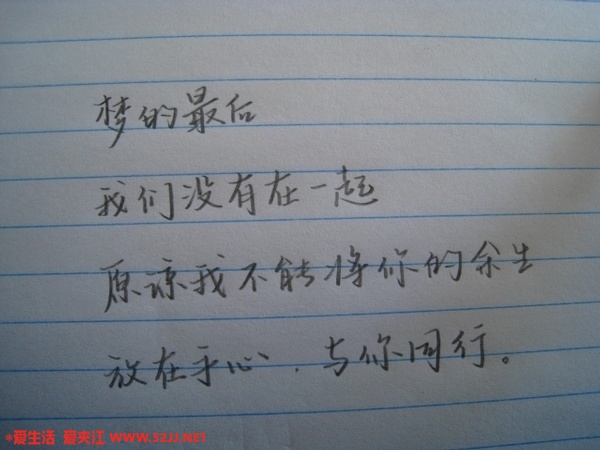 梦的最后
我们没有在一起
原谅我不能将你的余生
放在手心.与你同行。
*爱生活 爱夹江 WWW.52JJ.NET